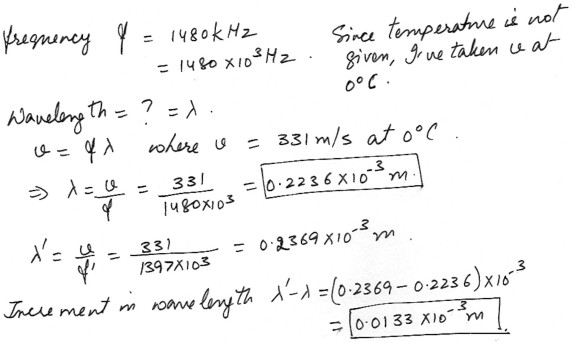 frequency f = 1480kHz
= 1480 ×10³Hz.
Since temperature is not
given, I've taken v at
0°C.
Wavelength = ? = λ.
v = fλ where v = 331m/s at 0°C.
⇒ λ = v/f = 331/1480×10³ = 0.2236×10⁻³ m.
λ' = v/f' = 331/1397×10³ = 0.2369×10⁻³ m.
Increment in wavelength λ'-λ = (0.2369 - 0.2236)×10⁻³
= 0.0133 ×10⁻³ m.